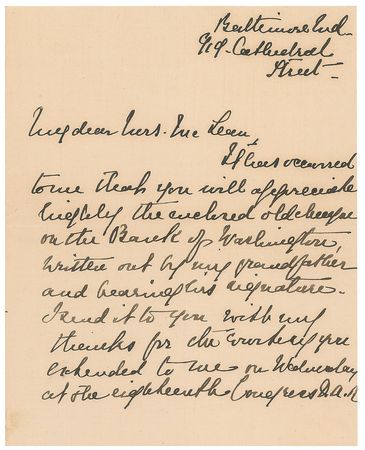 Baltimore Md.
919. Cathedral
Street.
My dear Mrs. McLean,
It has occurred
to me that you will appreciate
highly the enclosed old cheque
on the Bank of Washington,
written out by my grandfather
and bearing his signature.
I send it to you with my
thanks for the courtesy you
extended to me on Wednesday
at the eighteenth Congress D.A.R